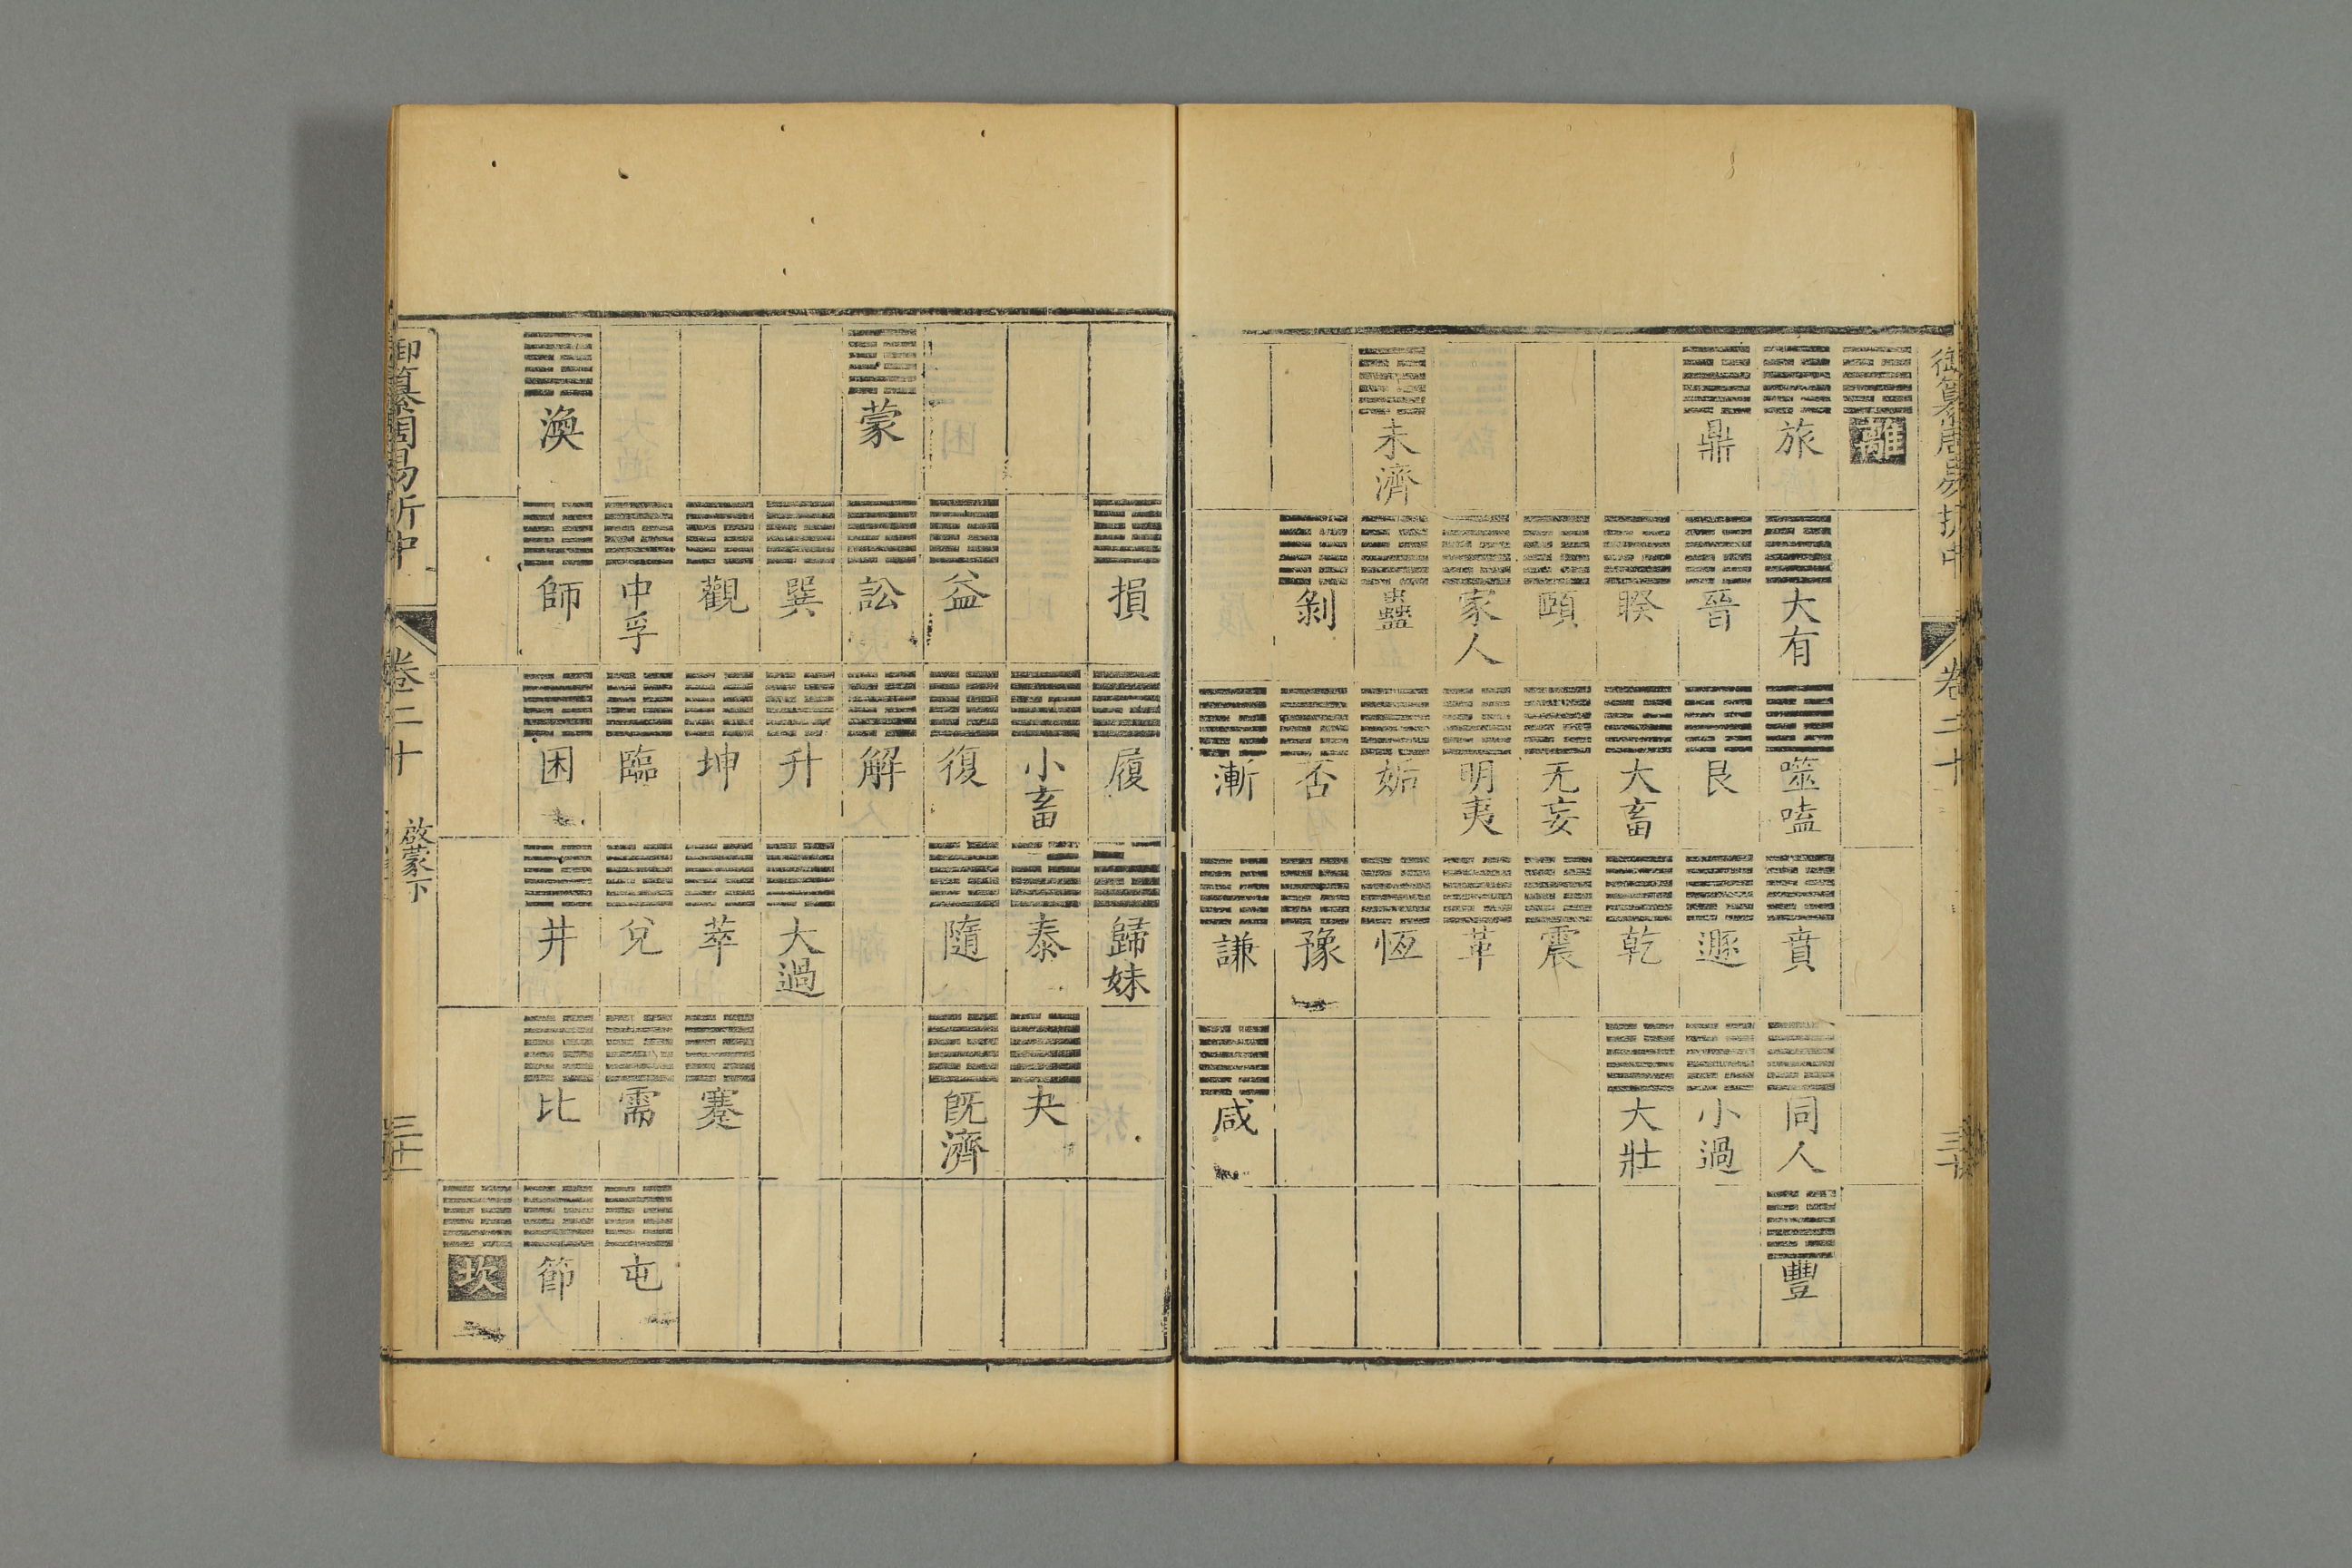 御纂周易折中 卷二十
離
旅 大有 噬嗑 賁 同人 豐
鼎 晉 艮 遯 小過
睽 大畜 乾 大壯
頤 无妄 震
家人 明夷 革
未濟 蠱 姤 恆
剝 否 豫
漸 謙 咸
損 履 歸妹
小畜 泰 夬
益 復 隨 既濟
蒙 訟 解
巽 升 大過
觀 坤 萃 蹇
中孚 臨 兌 需 屯
渙 師 困 井 比 節
坎
御纂周易折中 卷二十 啟蒙下 三十一